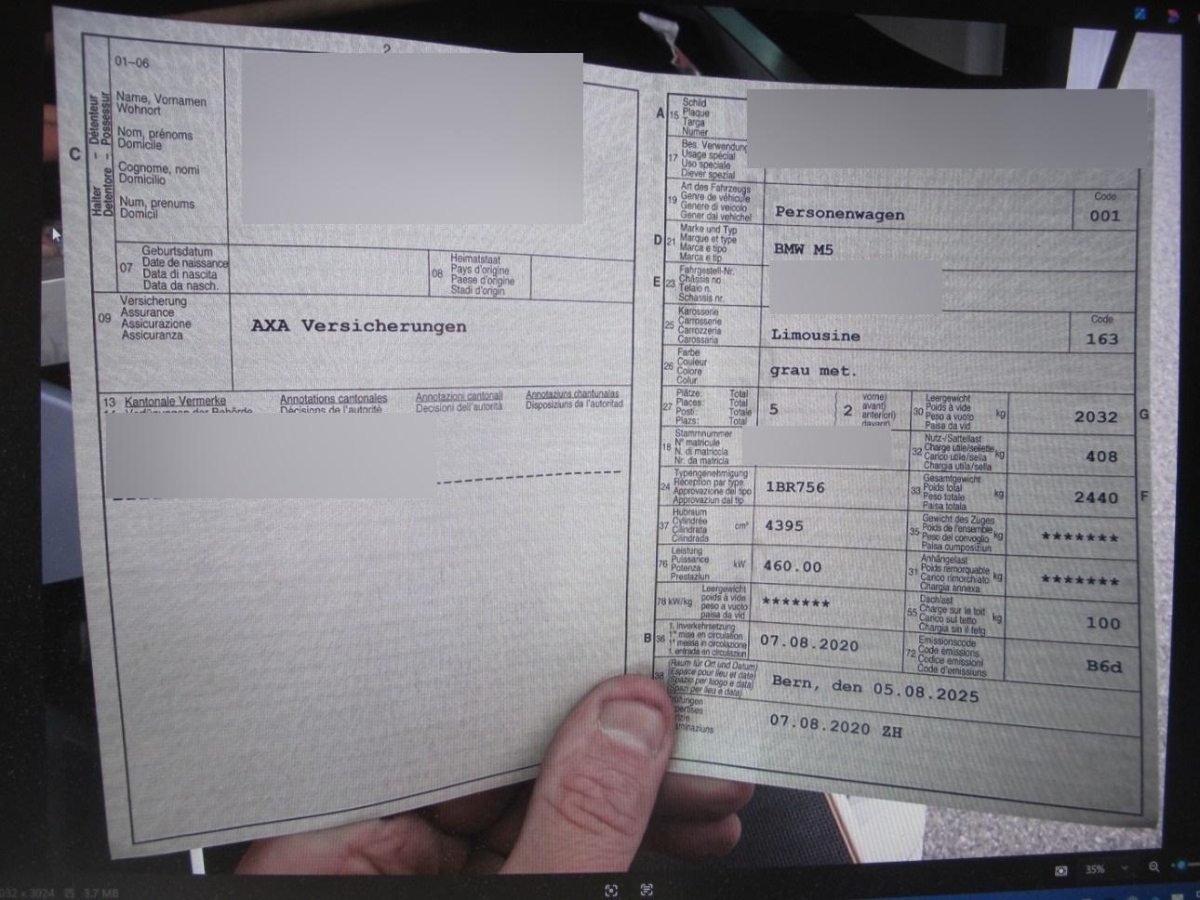 2
01-06
Name, Vornamen
Wohnort
Nom, prénoms
Domicile
Cognome, nomi
Domicilio
Num, prenums
Domicil
C
Halter - Détenteur
Detentore - Possessur
07
Geburtsdatum
Date de naissance
Data di nascita
Data da nasch.
08
Heimatstaat
Pays d'origine
Paese d'origine
Stadi d'origin
09
Versicherung
Assurance
Assicurazione
Assicuranza
AXA Versicherungen
13 Kantonale Vermerke
Annotations cantonales
Annotazioni cantonali
Annotaziuns chantunalas
Verfügungen der Behörde
Décisions de l'autorité
Decisioni dell'autorità
Disposiziuns da l'autoritad
A 15
Schild
Plaque
Targa
Numer
17
Bes. Verwendung
Usage spécial
Uso speciale
Diever spezial
19
Art des Fahrzeugs
Genre de véhicule
Genere di veicolo
Gener dal vehichel
Personenwagen
Code
001
D 21
Marke und Typ
Marque et type
Marca e tipo
Marca e tip
BMW M5
E 23
Fahrgestell-Nr.
Châssis no
Telaio n.
Schassis nr.
25
Karosserie
Carrosserie
Carrozzeria
Carossaria
Limousine
Code
163
26
Farbe
Couleur
Colore
Colur
grau met.
27
Plätze: Total
Places: Total
Posti: Totale
Plazs: Total
5
2
vorne)
avant)
anteriori)
davant)
30
Leergewicht
Poids à vide
Peso a vuoto
Paisa da vid
kg
2032
G
18
Stammnummer
N° matricule
N. di matricola
Nr. da matricla
32
Nutz-/Sattellast
Charge utile/sellette
Carico utile/sella
Chargia utila/sella
kg
408
24
Typengenehmigung
Réception par type
Approvazione del tipo
Approvaziun dal tip
1BR756
33
Gesamtgewicht
Poids total
Peso totale
Paisa totala
kg
2440
F
37
Hubraum
Cylindrée
Cilindrata
Cilindrada
cm³
4395
35
Gewicht des Zuges
Poids de l'ensemble
Peso del convoglio
Paisa cumposiziun
kg
*******
76
Leistung
Puissance
Potenza
Prestaziun
kW
460.00
31
Anhängelast
Poids remorquable
Carico rimorchiato
Chargia annexa
kg
*******
78 kW/kg
Leergewicht
poids à vide
peso a vuoto
paisa da vid
*******
55
Dachlast
Charge sur le toit
Carico sul tetto
Chargia sin il tetg
kg
100
B 36
1. Inverkehrsetzung
1re mise en circulation
1a messa in circolazione
1. entrada en circulaziun
07.08.2020
72
Emissionscode
Code émissions
Codice emissioni
Code d'emissiuns
B6d
38
(Raum für Ort und Datum)
(Espace pour lieu et date)
(Spazio per luogo e data)
(Spazi per lieu e data)
Bern, den 05.08.2025
07.08.2020 ZH
3.7 MB
35%